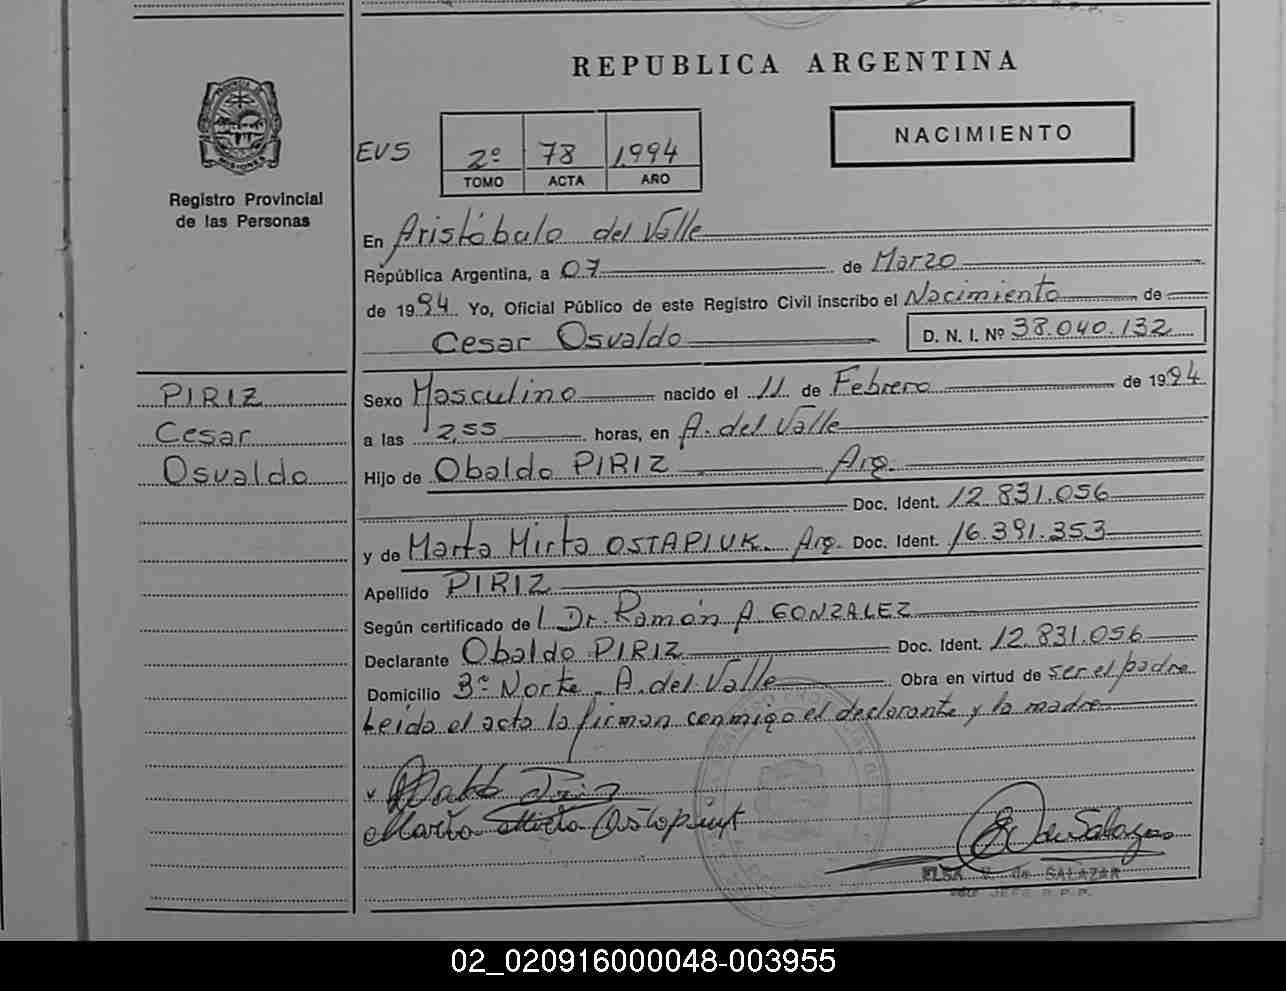 REPUBLICA ARGENTINA
NACIMIENTO
EVS
2º 78 1.994
TOMO ACTA AÑO
Registro Provincial
de las Personas
En Aristóbulo del Valle
República Argentina, a 07 de Marzo
de 1994 Yo, Oficial Público de este Registro Civil inscribo el Nacimiento de
Cesar Osvaldo D. N. I. Nº 38.040.132
PIRIZ
Cesar
Osvaldo
Sexo Masculino nacido el 11 de Febrero de 1994
a las 2,55 horas, en A. del Valle
Hijo de Obaldo PIRIZ Arg.
Doc. Ident. 12.831.056
y de Marta Mirta OSTAPIUK Arg. Doc. Ident. 16.391.353
Apellido PIRIZ
Según certificado de l Dr. Ramón A. GONZALEZ
Declarante Obaldo PIRIZ Doc. Ident. 12.831.056
Domicilio 3º Norte - A. del Valle Obra en virtud de ser el padre
Leida el acta la firman conmigo el declarante y la madre
ELSA de SALAZAR
02_020916000048-003955